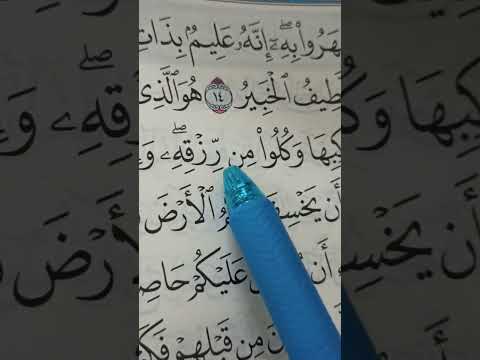 هَرُواْ بِهِۦٓۖ إِنَّهُۥ عَلِيمُۢ بِذَاتِ
طِيفُ ٱلْخَبِيرُ ١٤ هُوَ ٱلَّذِى
كِبِهَا وَكُلُواْ مِن رِّزْقِهِۦۖ وَإِ
أَن يَخْسِفَ ٱلْأَرْضَ
أَن عَلَيْكُمْ حَاصِ
نَ مِن قَبْلِهِمْ فَكَ